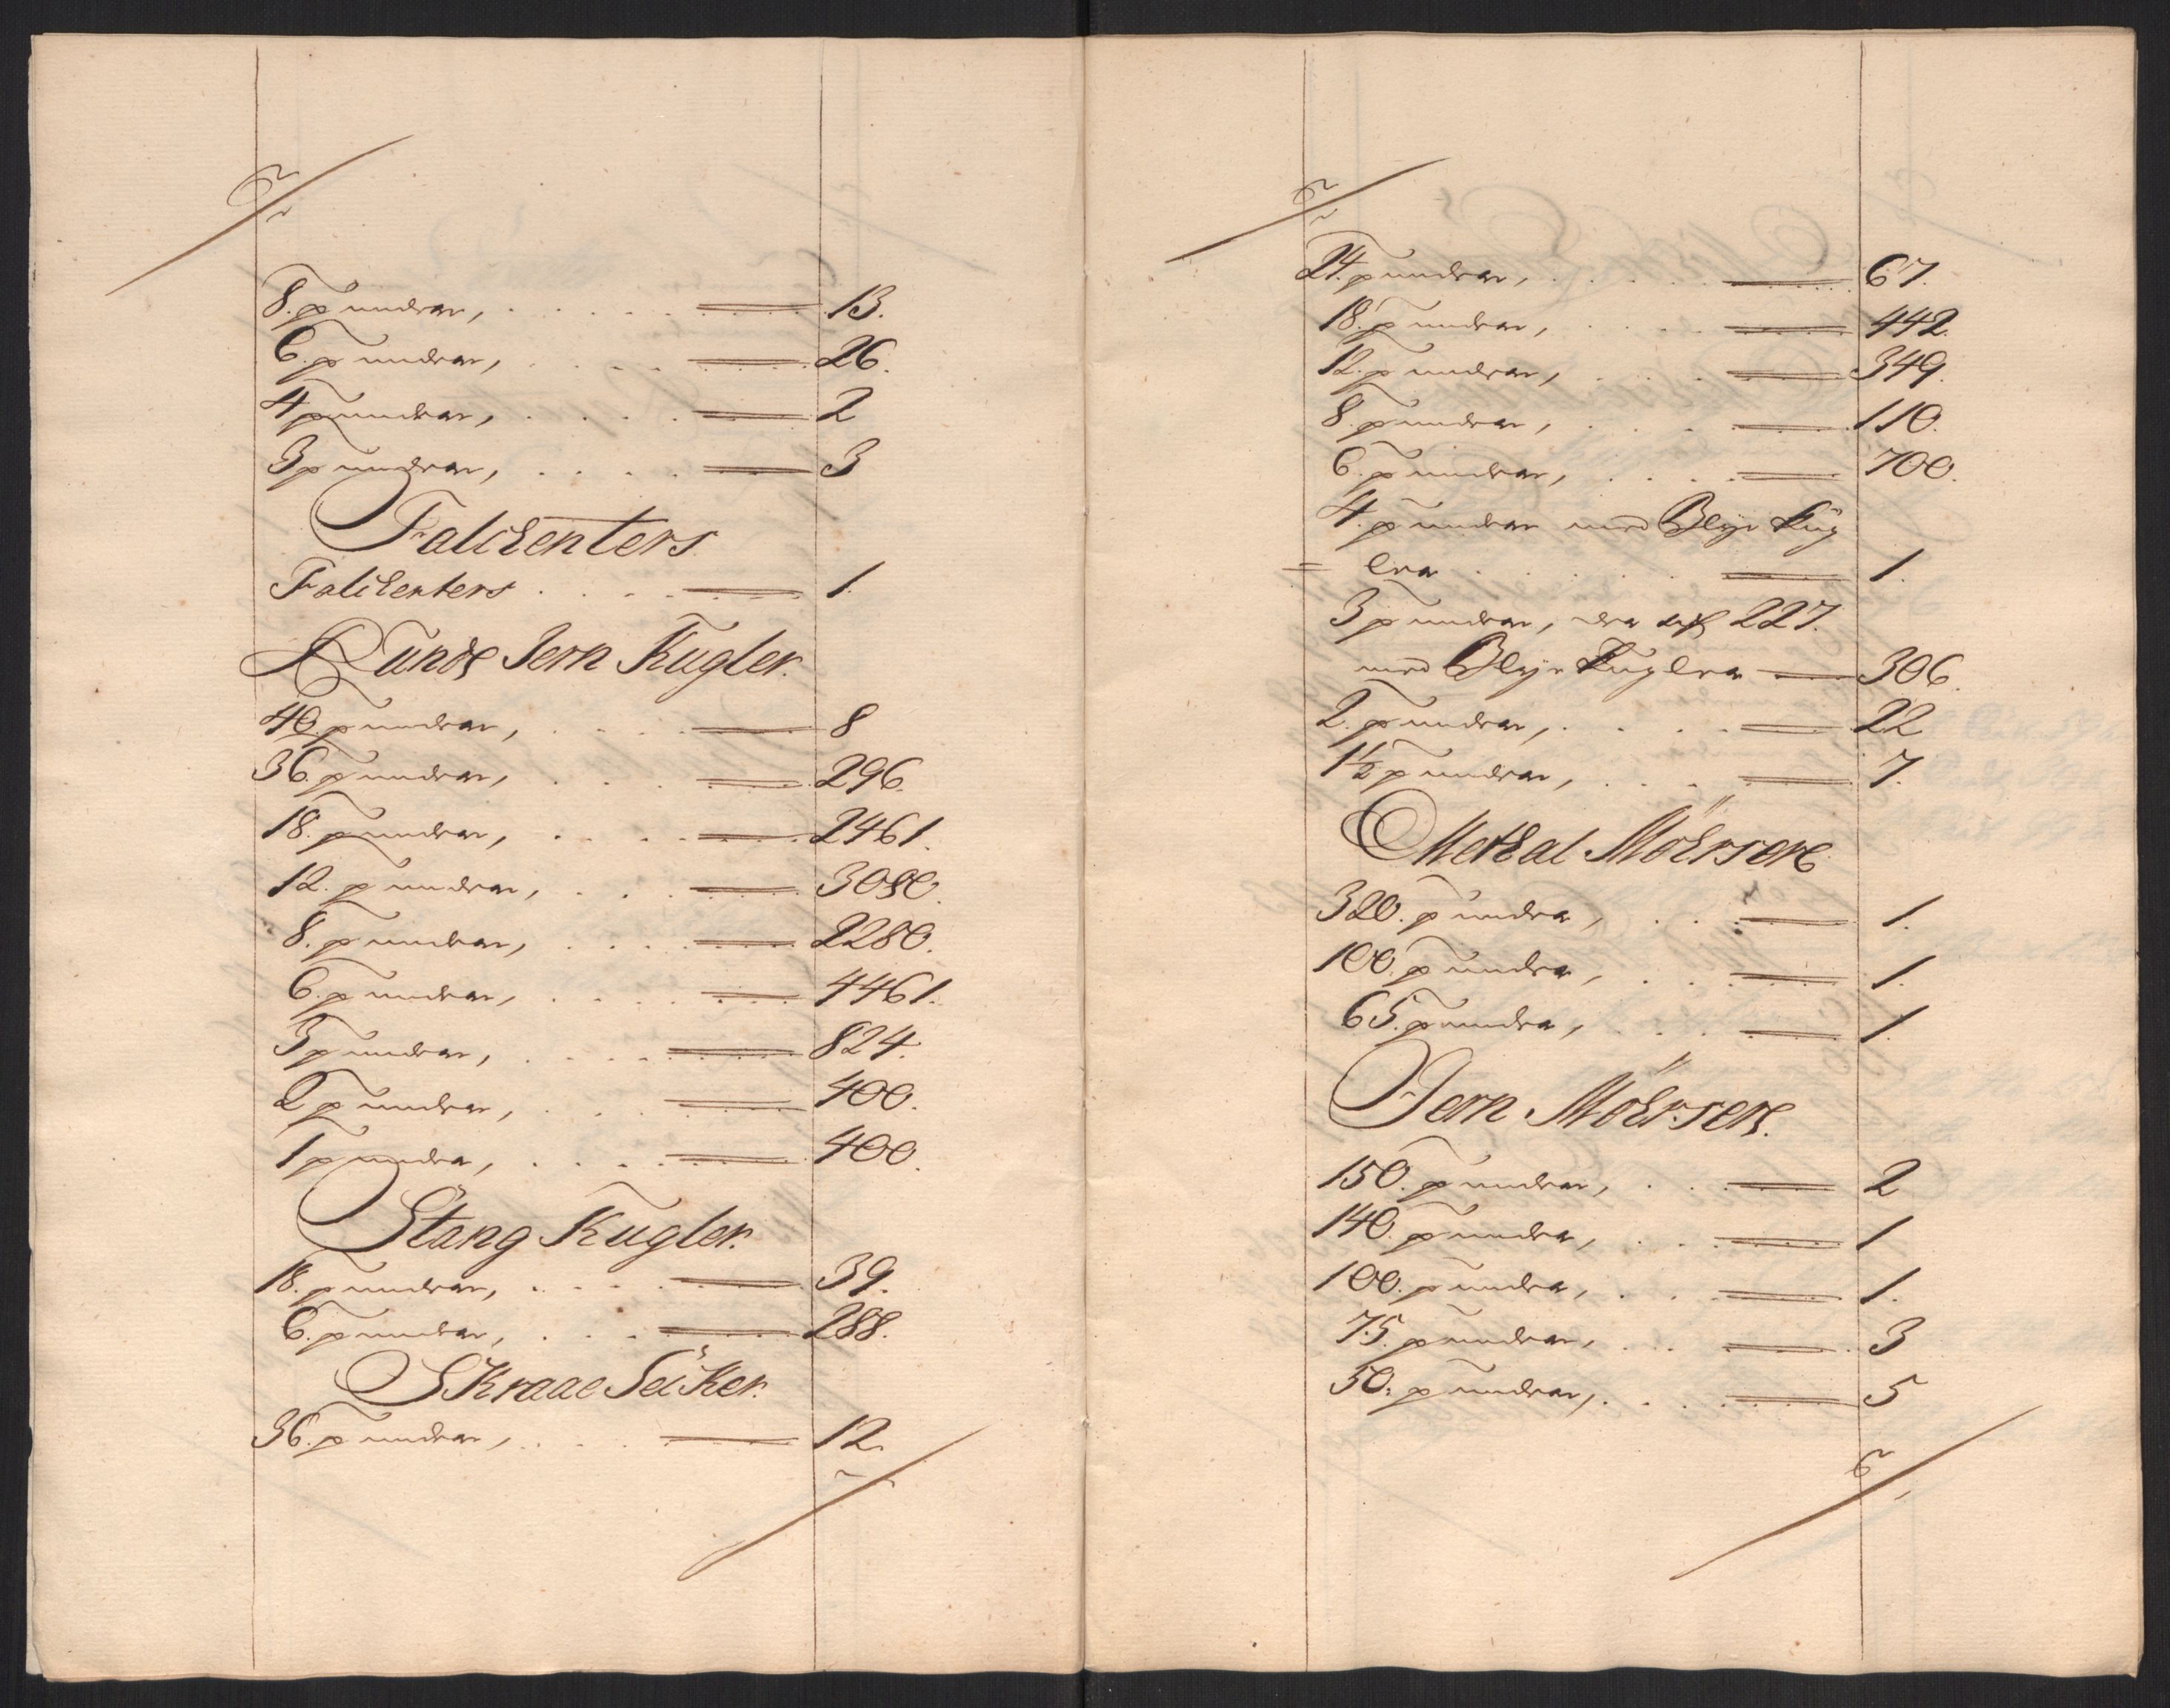 8. pundcr, 13.
6. pundcr, 26.
4 pundcr, 2
3 pundcr, 3
Falckenters
Falckenters 1.
Runde Jern Kugler.
40. pundcr, 8
36. pundcr, 296.
18. pundcr, 2461.
12. pundcr, 3080.
8. pundcr, 2280.
6. pundcr, 4461.
3 pundcr, 824.
2 pundcr, 400.
1 pundcr, 400.
Stang Kugler.
18. pundcr, 39.
6. pundcr, 288.
Skraae Secker.
36. pundcr, 12.
24. pundcr, 67.
18. pundcr, 442.
12. pundcr, 349.
8. pundcr, 110.
6. pundcr, 700.
4. pundcr med Blye Kug
= ler 1.
3 pundcr, der af 227.
med Blye Kugler 306.
2. pundcr, 22
1½ pundcr, 7.
Metal Mörsere
320. pundcr, 1.
100. pundcr, 1.
65. pundcr, 1.
Jern Mörsere.
150. pundcr, 2
140. pundcr, 1
100. pundcr, 1.
75. pundcr, 3
50. pundcr, 5